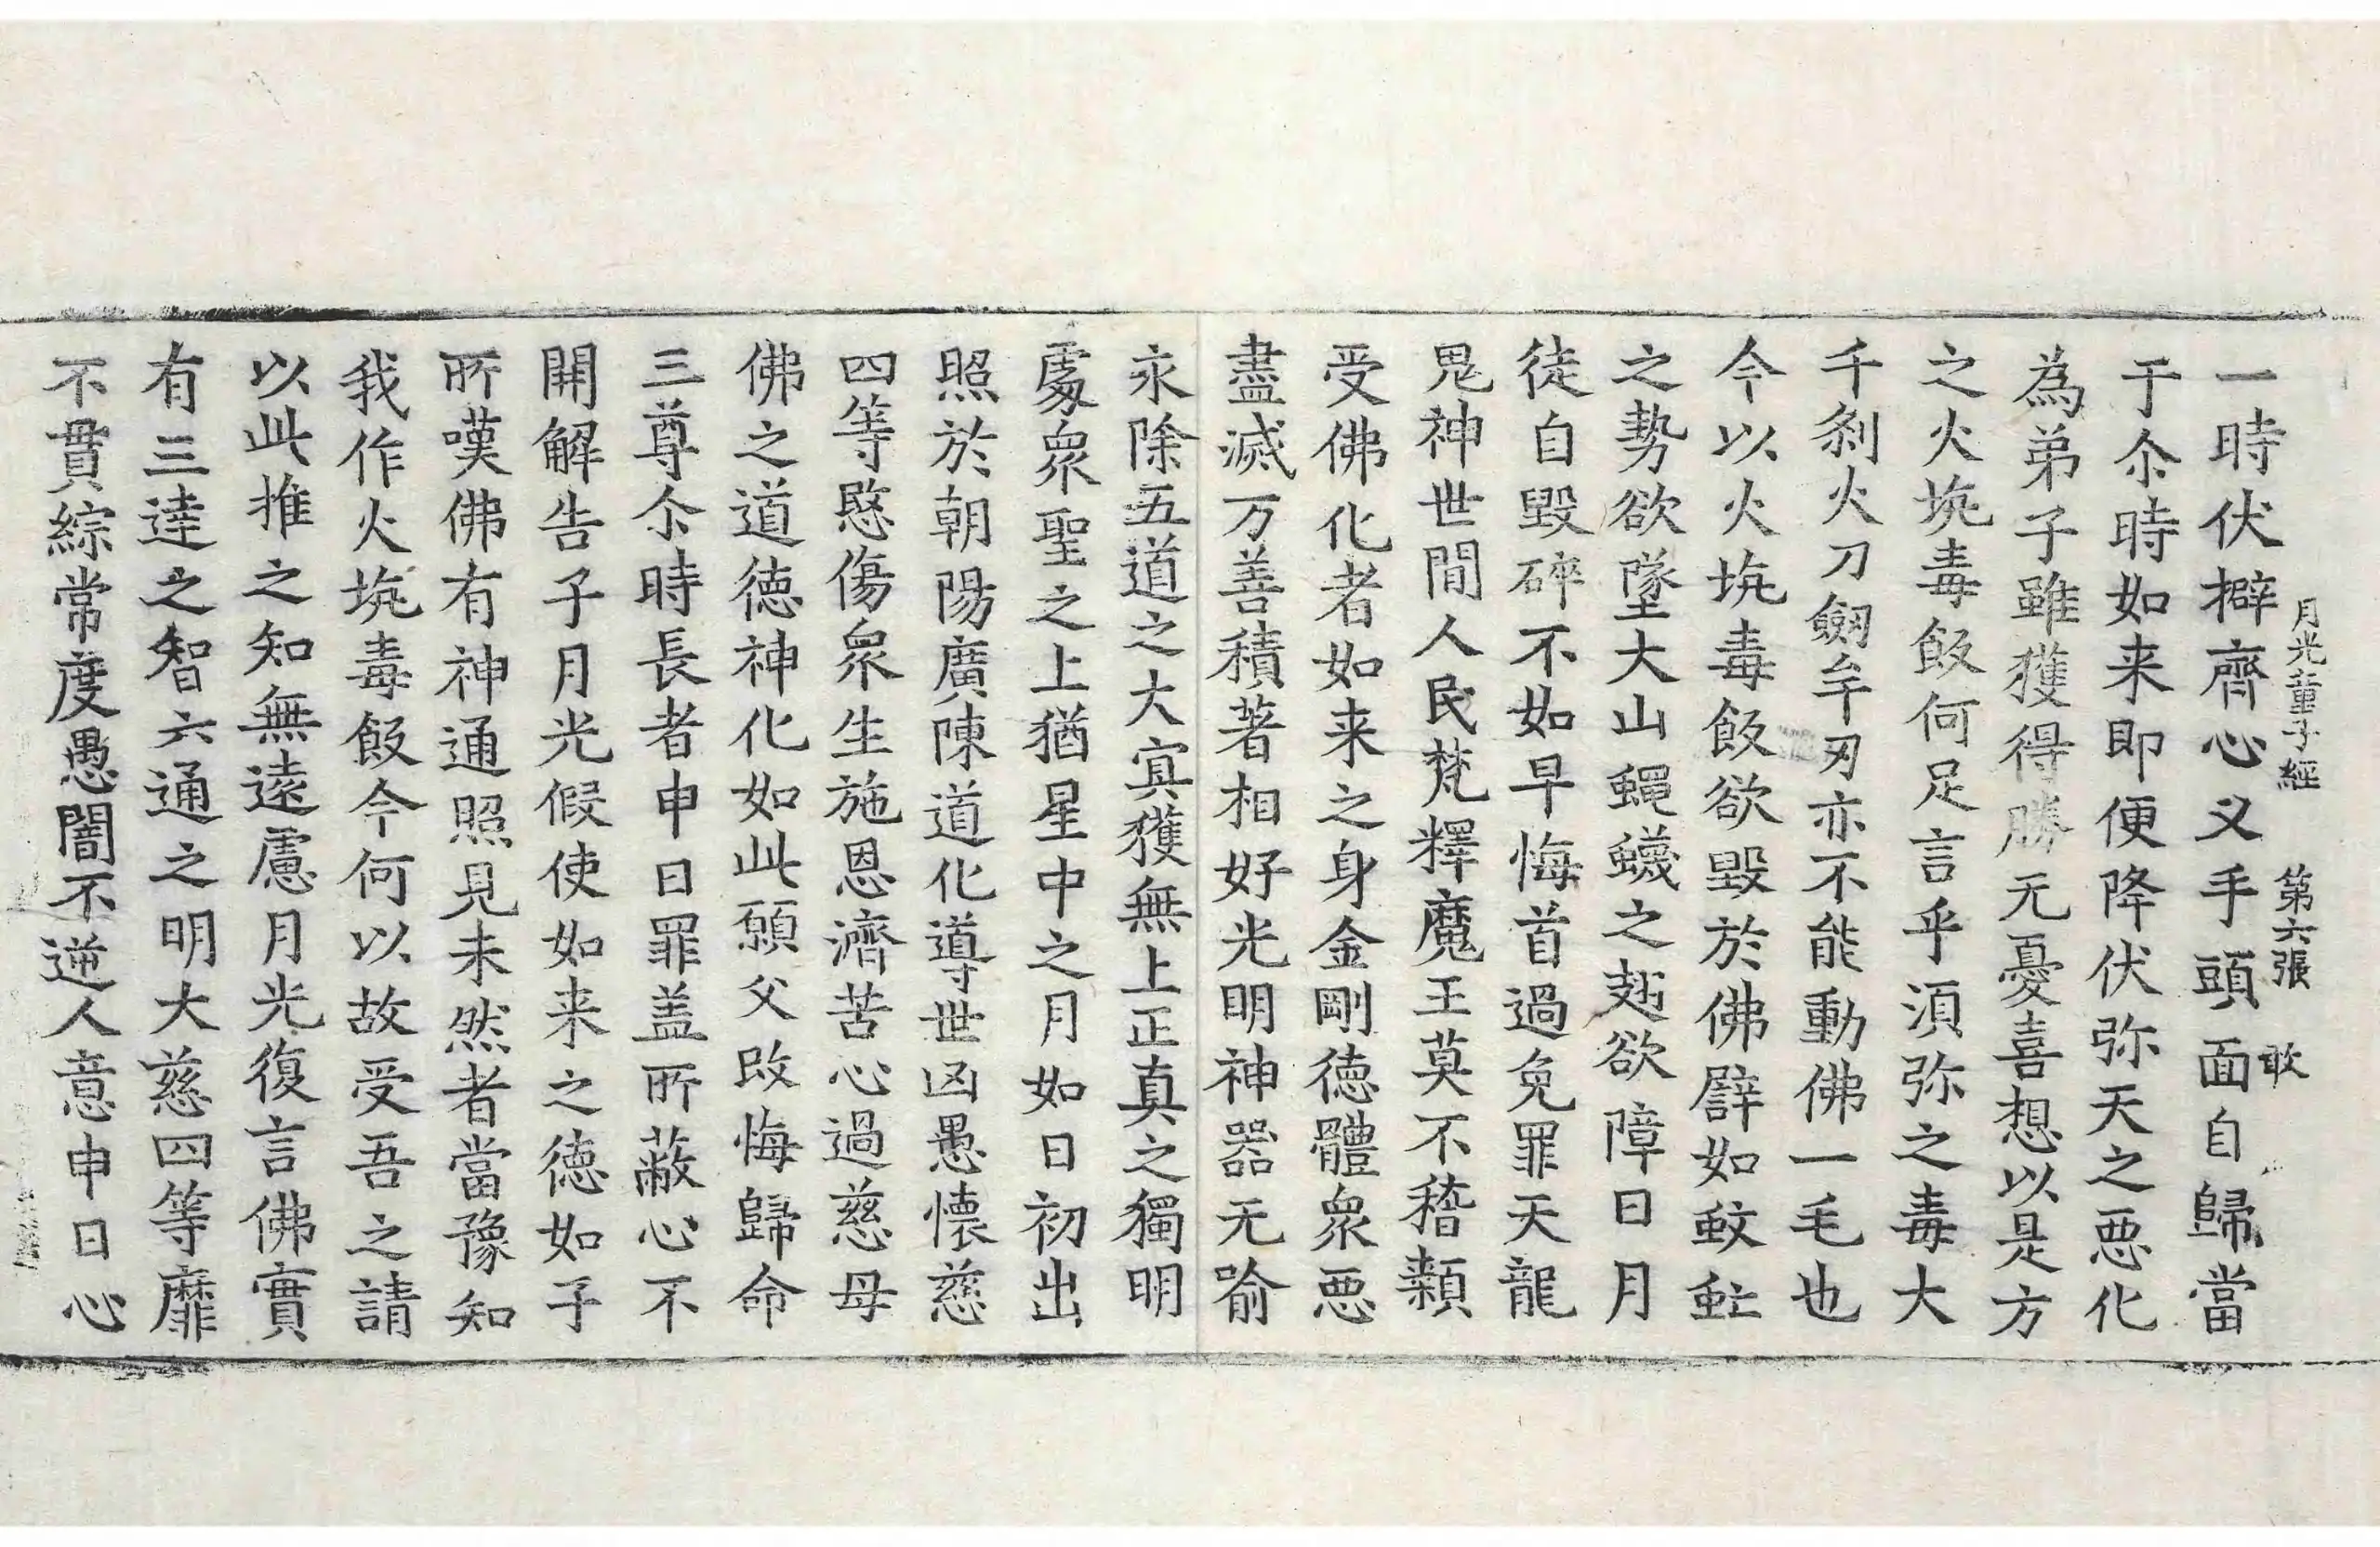 月光童子經 第六張 敢
一時伏擗齊心叉手頭面自歸當
于尒時如来即便降伏弥天之悪化
為弟子雖獲得勝无憂喜想以是方
之火坑毒飯何足言乎湏弥之毒大
千剎火刀劒牟刃亦不能動佛一毛也
今以火坑毒飯欲毀於佛譬如蚊䖟
之勢欲墜大山蠅蠛之翅欲障日月
徒自毀碎不如早悔首過免罪天龍
鬼神世間人民梵釋魔王莫不稽顙
受佛化者如来之身金剛徳體衆悪
盡滅万善積著相好光明神器无喻
永除五道之大冥獲無上正真之獨明
處衆聖之上猶星中之月如日初出
照於朝陽廣陳道化導世凶愚懷慈
四等愍傷衆生施恩濟苦心過慈母
佛之道徳神化如此願父改悔歸命
三尊尒時長者申日罪盖所蔽心不
開解告子月光假使如来之徳如子
所嘆佛有神通照見未然者當豫知
我作火坑毒飯今何以故受吾之請
以此推之知無遠慮月光復言佛實
有三達之智六通之明大慈四等靡
不貫綜常度愚闇不逆人意申日心